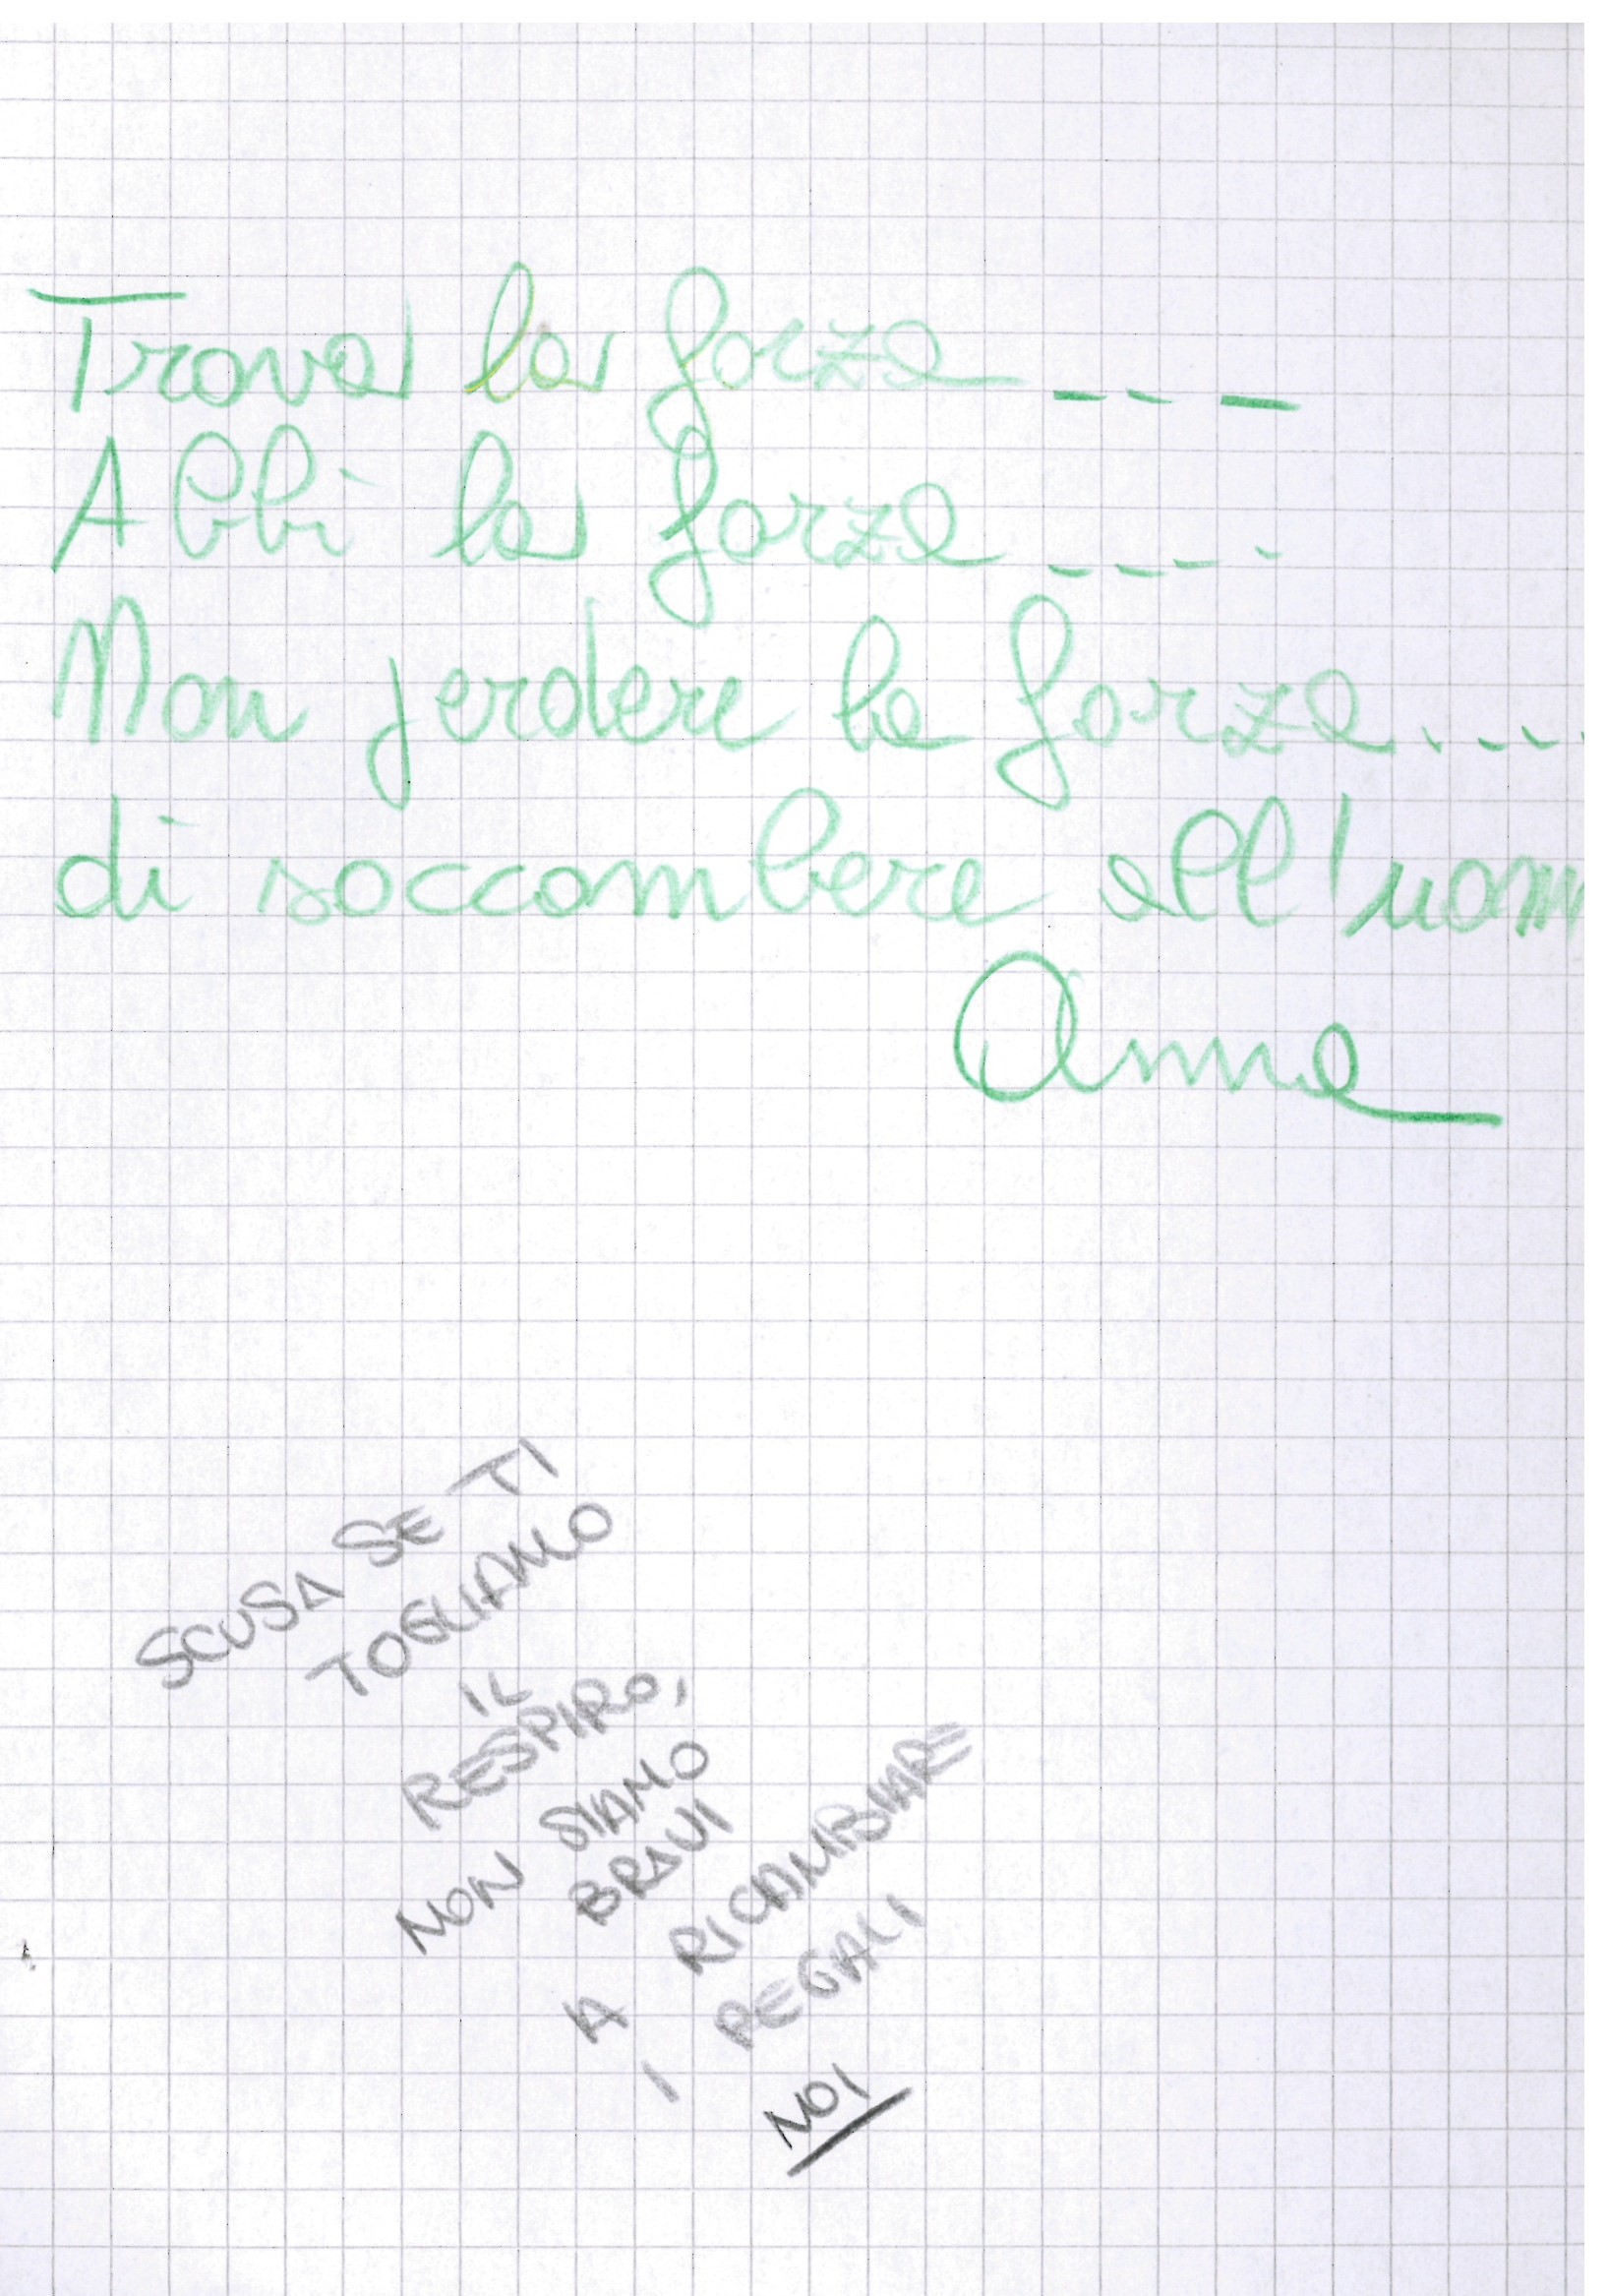 Trova la forza ---
Abbi la forza ----
Non perdere la forza....
di soccombere all'uom
Anna
SCUSA SE TI
TOGLIAMO
IL
RESPIRO,
NON SIAMO
BRAVI
A RICAMBIARE
I REGALI
NOI